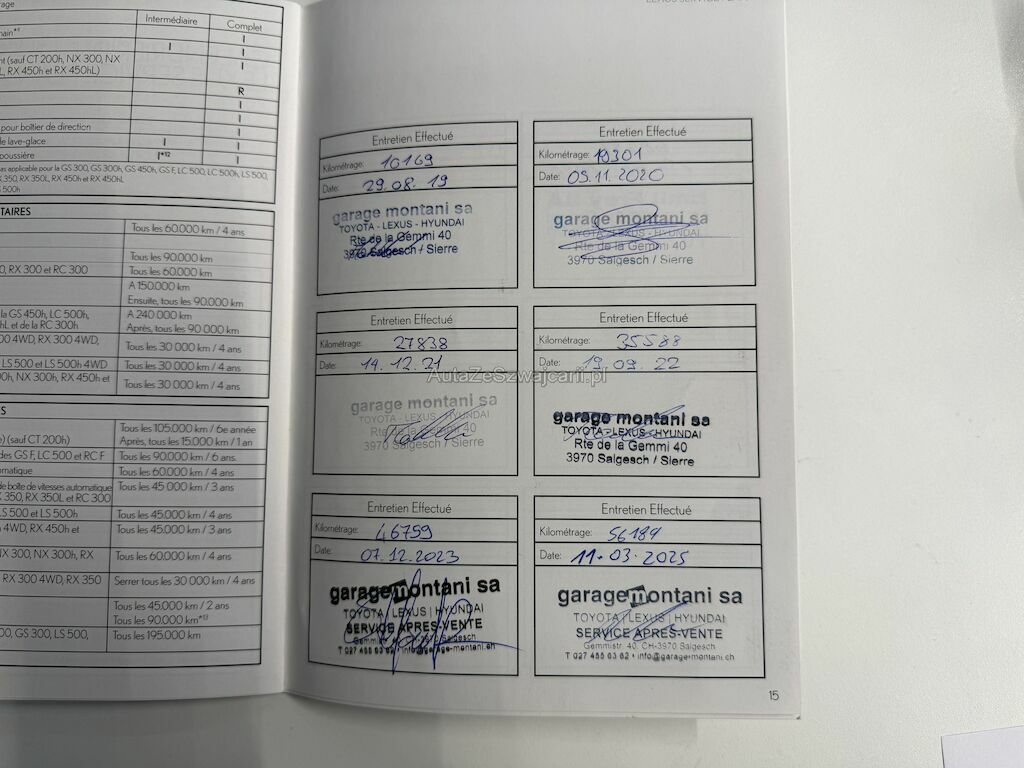 Intermédiaire
Complet
I
I
nt (sauf CT 200h, NX 300, NX
L, RX 450h et RX 450hL)
I
R
I
pour boîtier de direction
I
de lave-glace
I
I
poussière
I*12
I
as applicable pour la GS 300, GS 300h, GS 450h, GS F, LC 500, LC 500h, LS 500,
X 350, RX 350L, RX 450h et RX 450hL
S 500h
TAIRES
Tous les 60.000 km / 4 ans
Tous les 90.000 km
0, RX 300 et RC 300
Tous les 60.000 km
A 150.000 km
Ensuite, tous les 90.000 km
la GS 450h, LC 500h,
A 240 000 km
hL et de la RC 300h
Après, tous les 90 000 km
00 4WD, RX 300 4WD,
Tous les 30 000 km / 4 ans
LS 500 et LS 500h 4WD
Tous les 30 000 km / 4 ans
00h, NX 300h, RX 450h et
Tous les 30 000 km / 4 ans
ES
Tous les 105.000 km / 6e année
e) (sauf CT 200h)
Après, tous les 15.000 km / 1 an
des GS F, LC 500 et RC F
Tous les 90.000 km / 6 ans.
omatique
Tous les 60.000 km / 4 ans
de boîte de vitesses automatique
X 350, RX 350L et RC 300
Tous les 45 000 km / 3 ans
LS 500 et LS 500h
Tous les 45.000 km / 4 ans
4WD, RX 450h et
Tous les 45.000 km / 3 ans
NX 300, NX 300h, RX
Tous les 60.000 km / 4 ans
RX 300 4WD, RX 350
Serrer tous les 30 000 km / 4 ans
Tous les 45.000 km / 2 ans
Tous les 90.000 km*13
00, GS 300, LS 500,
Tous les 195.000 km
Entretien Effectué
Kilométrage: 10169
Date: 29.08.19
garage montani sa
TOYOTA - LEXUS - HYUNDAI
Rte de la Gemmi 40
3970 Salgesch / Sierre
Entretien Effectué
Kilométrage: 19301
Date: 05.11.2020
garage montani sa
TOYOTA - LEXUS - HYUNDAI
Rte de la Gemmi 40
3970 Salgesch / Sierre
Entretien Effectué
Kilométrage: 27838
Date: 14.12.21
garage montani sa
TOYOTA - LEXUS - HYUNDAI
Rte de la Gemmi 40
3970 Salgesch / Sierre
Entretien Effectué
Kilométrage: 35588
Date: 19.09.22
garage montani sa
TOYOTA - LEXUS - HYUNDAI
Rte de la Gemmi 40
3970 Salgesch / Sierre
AutaZeSzwajcarii.pl
Entretien Effectué
Kilométrage: 46759
Date: 07.12.2023
garagemontani sa
TOYOTA | LEXUS | HYUNDAI
SERVICE APRES-VENTE
Gemmistr. 40, CH-3970 Salgesch
T 027 455 63 62 • info@garage-montani.ch
Entretien Effectué
Kilométrage: 56189
Date: 11.03.2025
garagemontani sa
TOYOTA | LEXUS | HYUNDAI
SERVICE APRES-VENTE
Gemmistr. 40, CH-3970 Salgesch
T 027 455 63 62 • info@garage-montani.ch
15